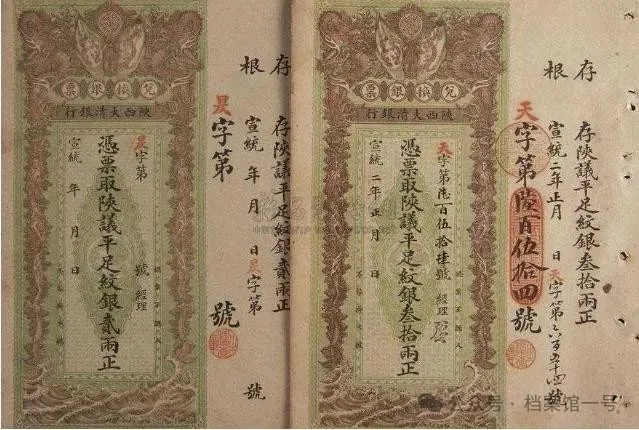 存根
存陝議平足紋銀叁拾兩正
宣統二年正月 日 天字第六百五十四號
天字第陸百伍拾四號
兌換銀票
陝西大清銀行
認票不認人
天字第陸百伍拾肆號 經理
憑票取陝議平足紋銀叁拾兩正
宣統二年正月 日
存根
存陝議平足紋銀貳兩正
宣統 年 月 日 昃字第 號
昃字第 號
兌換銀票
陝西大清銀行
認票不認人
昃字第 號 經理
憑票取陝議平足紋銀貳兩正
宣統 年 月 日
公众号·档案馆一号